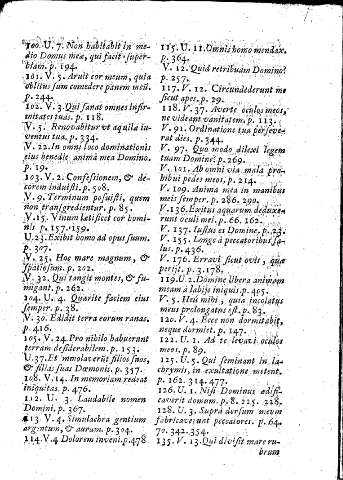 100. U. 7. Non habitabit in me-
dio Domus meæ, qui facit super-
biam. p. 194.
101. V. 5. Aruit cor meum, quia
oblitus sum comedere panem meũ.
p. 244.
102. V. 3. Qui sanat omnes infir-
mitates tuas. p. 118.
V. 5. Renovabitur ut aquilæ iu-
ventus tua. p. 334.
V. 22. In omni loco dominationis
eius benedic anima mea Domino.
p. 19.
103. V. 2. Confessionem, & de-
corem induisti. p. 508.
V. 9. Terminum posuisti, quem
non transgredientur. p. 85.
V. 15. Vinum lætificet cor homi-
nis p. 157. 159.
U. 23. Exibit homo ad opus suum.
p. 307.
V. 25. Hoc mare magnum, &
spatiosum. p. 202.
V. 32. Qui tangit montes, & fu-
migant. p. 262.
104. U. 4. Quærite faciem eius
semper. p. 38.
V. 30. Edidit terra eorum ranas.
p. 416.
105. V. 24. Pro nihilo habuerunt
terram desiderabilem. p. 153.
U. 37. Et immolaverũt filios suos,
& filias suas Dæmonis. p. 357.
108. V. 14. In memoriam redeat
iniquitas. p. 476.
112. U. 3. Laudabile nomen
Domini. p. 367.
113 V. 4. Simulachra gentium
argentum, & aurum. p. 304.
114. V. 4 Dolorem inveni. p. 478.
115. U. 11. Omnis homo mendax.
p. 364.
V. 12. Quid retribuam Domino?
p. 257.
117. V. 12. Circundederunt me
sicut apes. p. 29.
118 V. 37. Averte oculos meos,
ne videant vanitatem. p. 113.
V. 91. Ordinatione tua perseve-
rat dies. p. 344.
V. 97. Quo modo dilexi legem
tuam Domine? p. 269.
V. 101. Ab omni via mala pro-
hibui pedes meos, p. 214.
V. 109. Anima mea in manibus
meis semper. p. 286. 290.
V. 136. Exitus aquarum deduxe-
runt oculi mei. p. 66. 162.
V. 137. Iustus es Domine, p. 23.
V. 155. Longè à peccatoribus sa-
lus. p. 436.
V. 176. Erravi sicut ovis, quæ
perijt. p. 3. 178.
119. U. 2. Domine libera animam
meam à labijs iniquis. p. 405.
V. 5. Heu mihi, quia incolatus
meus prolongatus est. p. 83.
120. V. 4. Ecce non dormitabit,
neque dormiet. p. 147.
122. U. 1. Ad te levavi oculos
meos. p. 89.
125. U. 5. Qui seminant in la-
chrymis, in exultatione metent.
p. 162. 314. 477.
126. U. 1. Nisi Dominus ædifi-
caverit domum. p. 8. 225. 328.
128. U. 3. Supra dorsum meum
fabricaverunt peccatores. p. 64.
70. 342. 354.
135. V. 13. Qui divisit mare ru-
brum